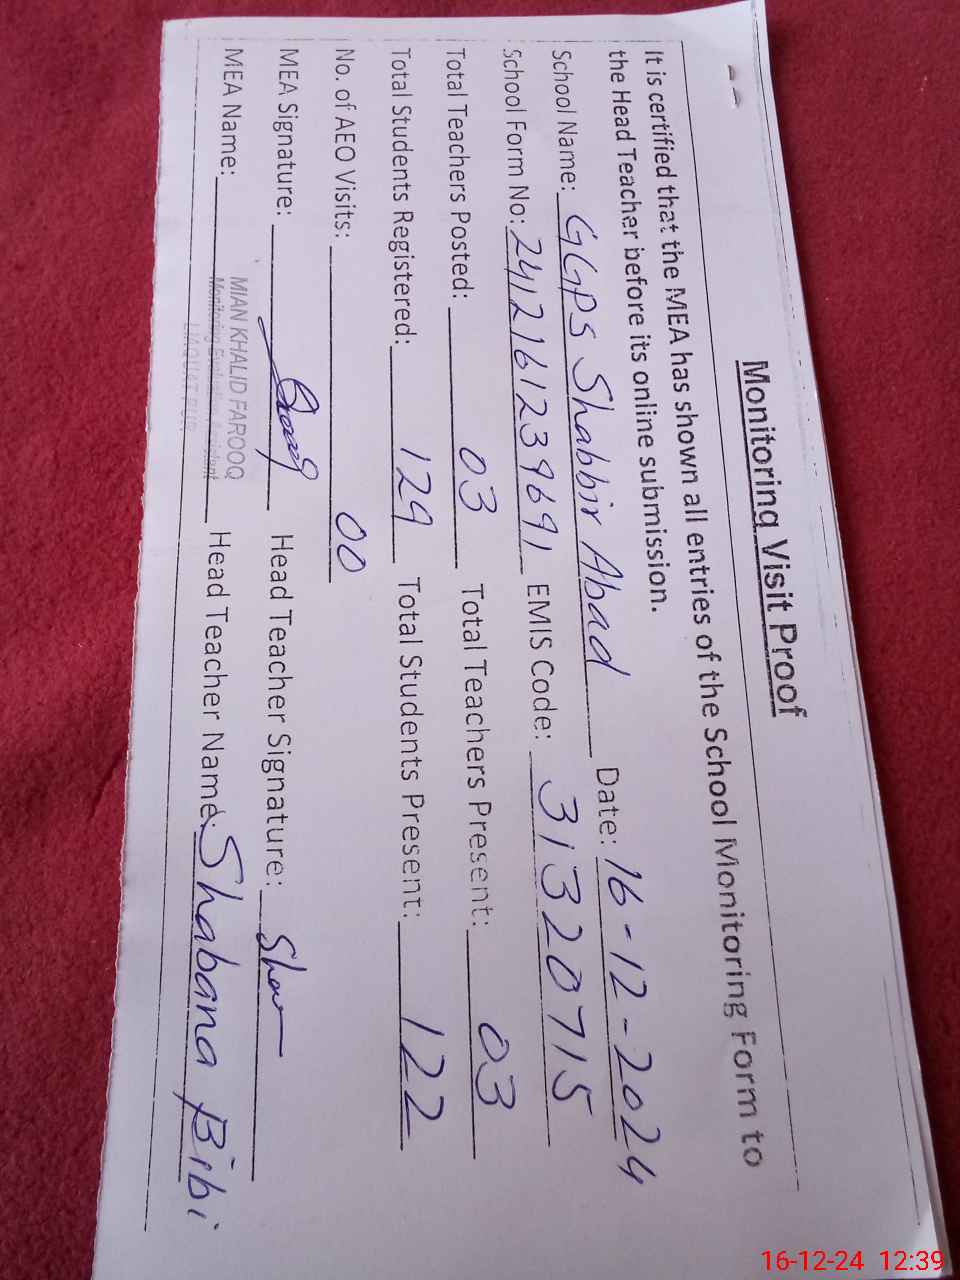 Monitoring Visit Proof
It is certified that the MEA has shown all entries of the School Monitoring Form to
the Head Teacher before its online submission.
School Name: GGPS Shabbir Abad Date: 16-12-2024
School Form No: 2412161239691 EMIS Code: 31320715
Total Teachers Posted: 03 Total Teachers Present: 03
Total Students Registered: 129 Total Students Present: 122
No. of AEO Visits: 00
MEA Signature: Head Teacher Signature:
MIAN KHALID FAROOQ
Monitoring Evaluation Assistant
MEA Name: Head Teacher Name: Shabana Bibi
16-12-24 12:39